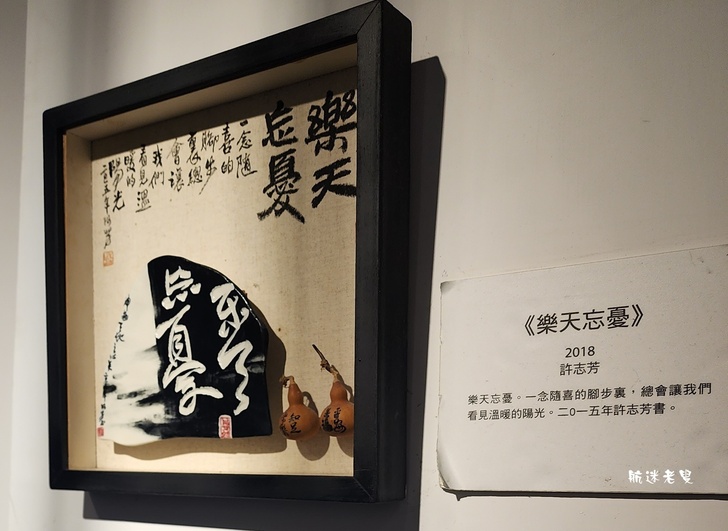 樂天
忘憂
一念隨
喜的
腳步
裏總
會讓
我們
看見溫
暖的
陽光
二〇一五年許志芳
樂天
忘憂
知足
《樂天忘憂》
2018
許志芳
樂天忘憂。一念隨喜的腳步裏，總會讓我們
看見溫暖的陽光。二0一五年許志芳書。
航迷老叟